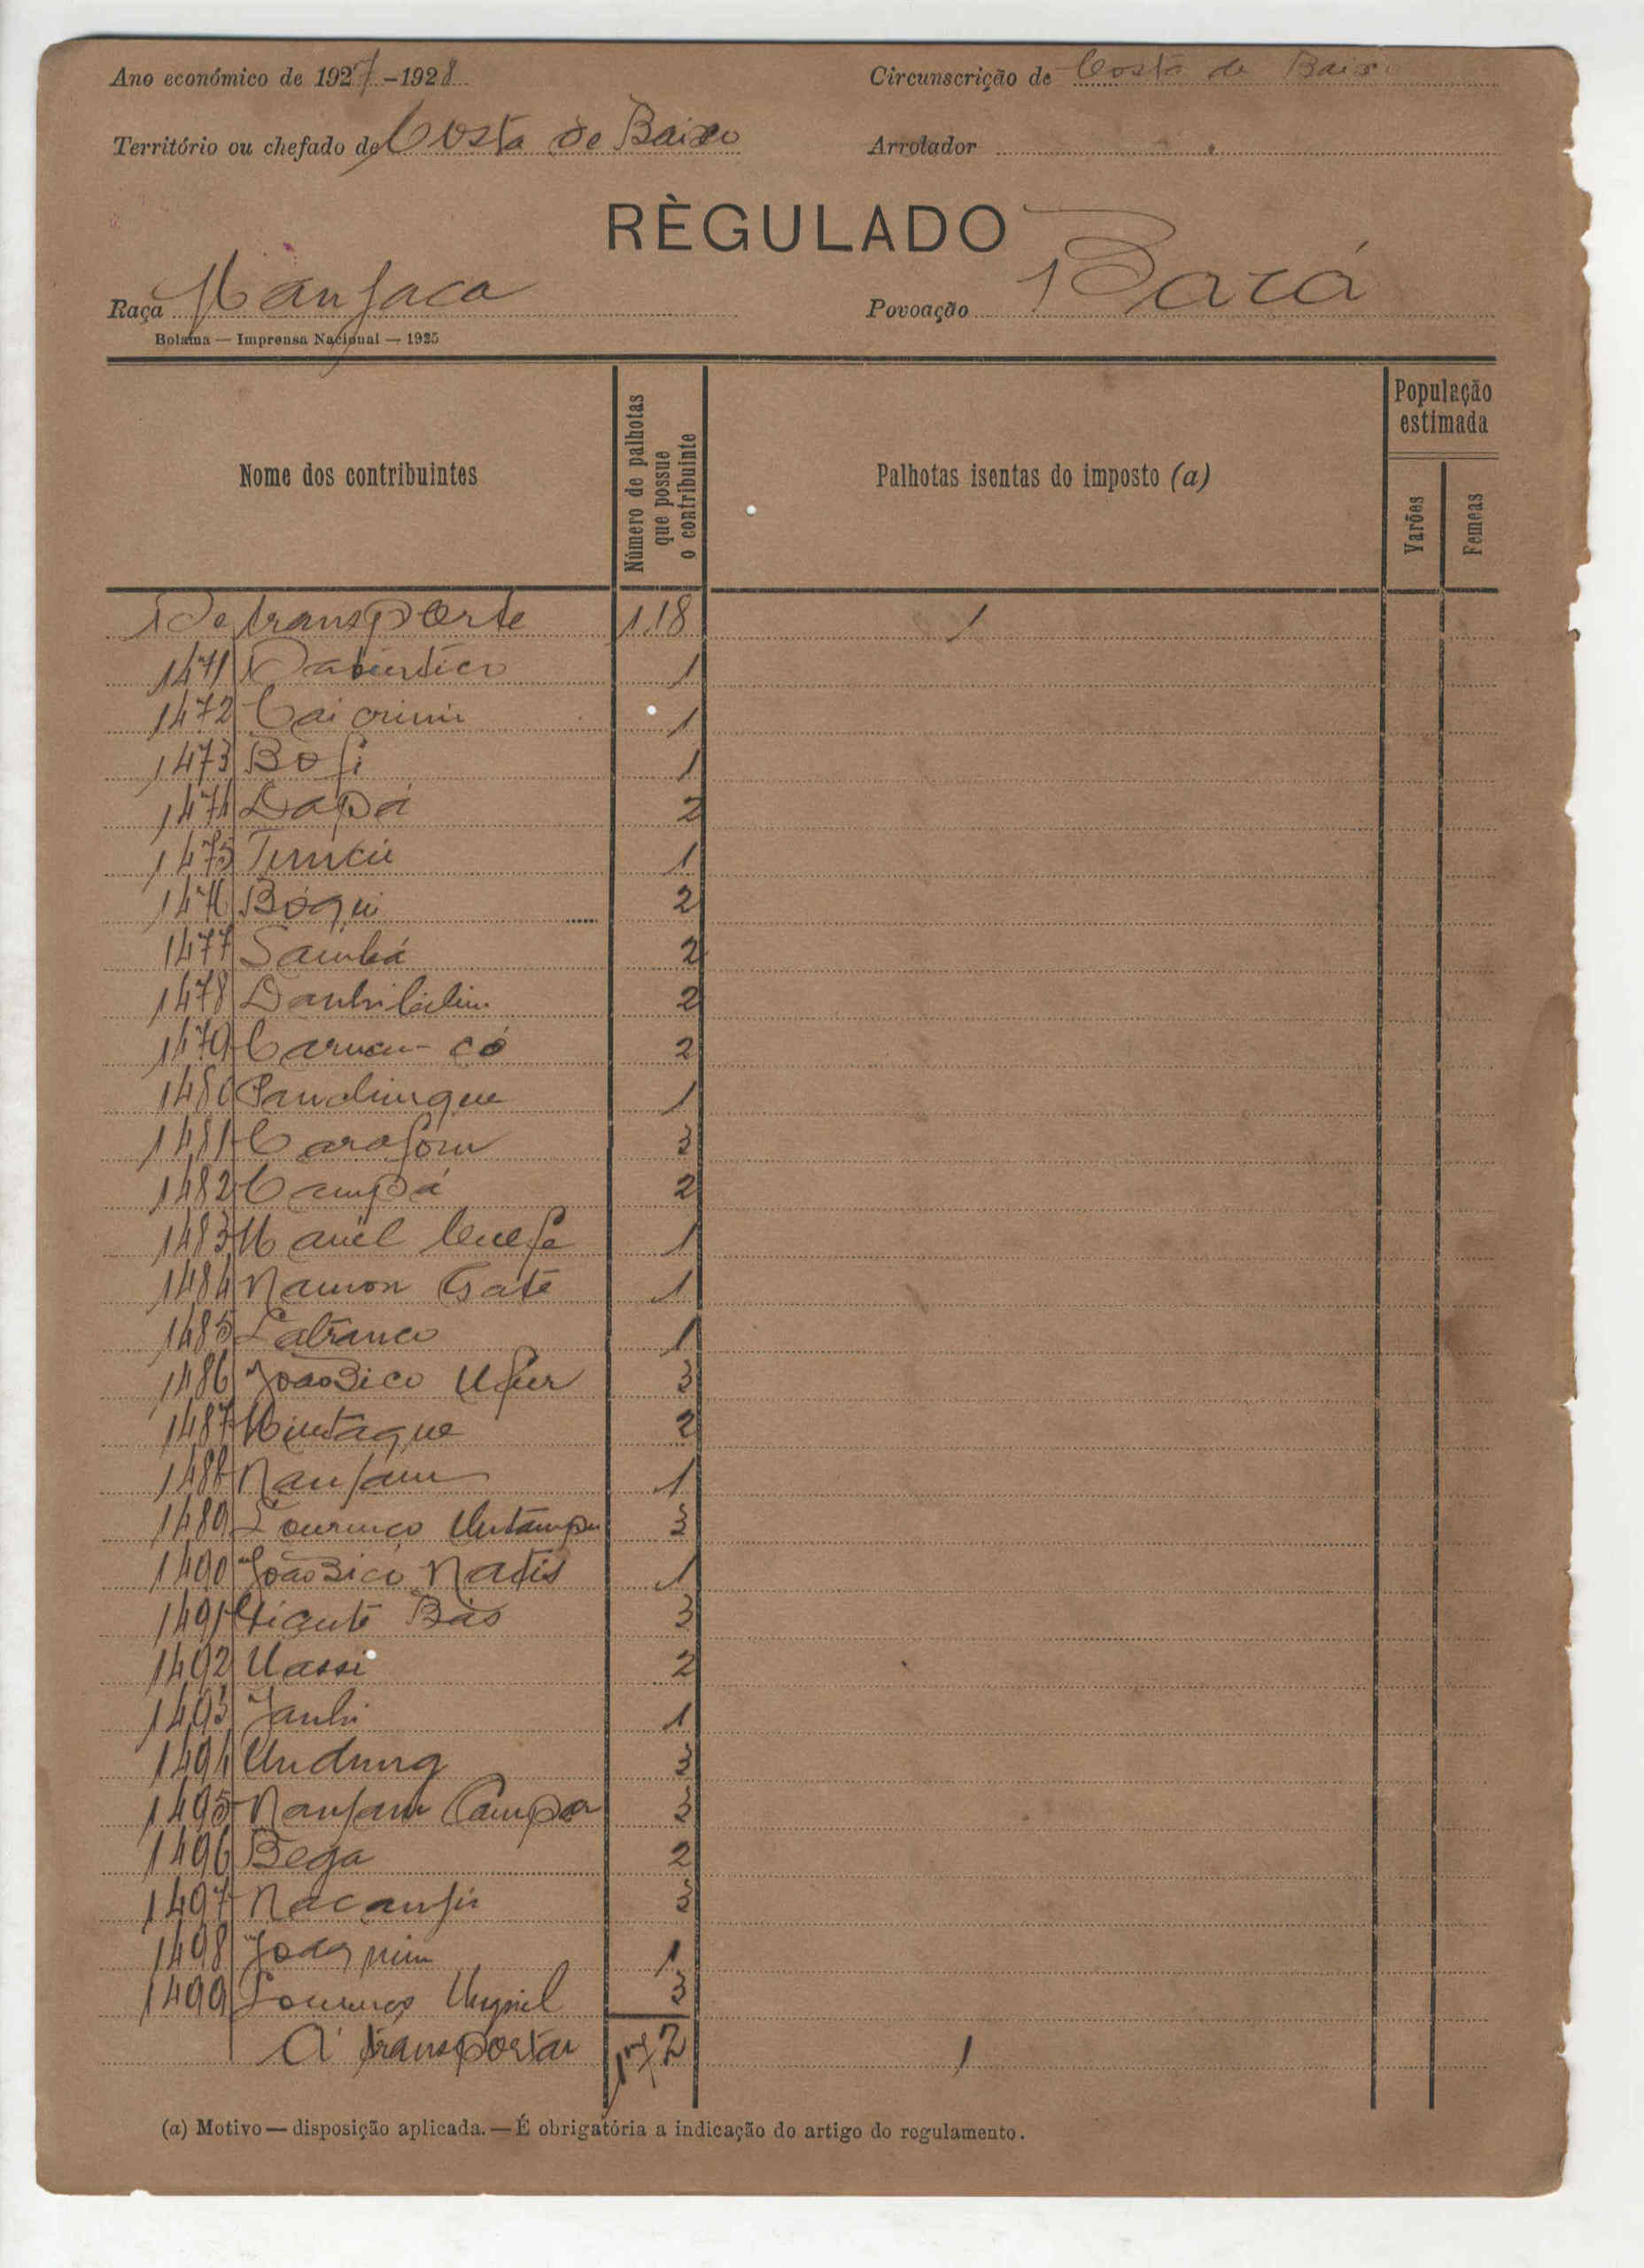 Ano económico de 1927-1928
Circunscrição de Costa de Baixo
Território ou chefado de Costa de Baixo
Arrolador
RÈGULADO
Raça Manjaca
Povoação Bará
Bolama — Imprensa Nacional — 1925
Nome dos contribuintes
Número de palhotas que possue o contribuinte
Palhotas isentas do imposto (a)
População estimada
Varões
Femeas
De transporte 118 1
1471 1
1472 1
1473 Bofi 1
1474 Dapá 2
1475 1
1476 Bóqui 2
1477 Sambá 2
1478 2
1479 có 2
1480 1
1481 3
1482 Campá 2
1483 1
1484 Gaté 1
1485 1
1486 João Bico 3
1487 2
1488 Nanjam 1
1489 Lourenço 3
1490 João Bico Natis 1
1491 Vicente Bás 3
1492 Uassi 2
1493 Janhi 1
1494 Undung 3
1495 Nanjam Campa 3
1496 Bega 2
1497 3
1498 Joaquim 1
1499 Lourenço 3
A transportar 172 1
(a) Motivo — disposição aplicada. — É obrigatória a indicação do artigo do regulamento.